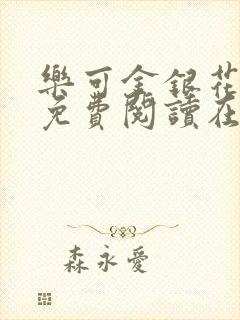 樂可金銀花
免費閱讀在
森永愛